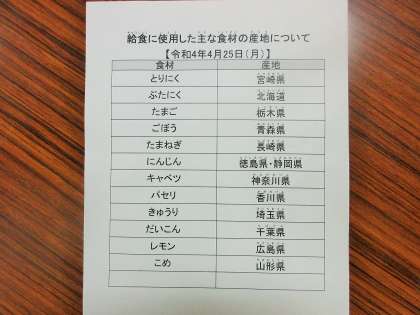 給食に使用した主な食材の産地について
【令和4年4月25日（月）】
食材 産地
とりにく 宮崎県
ぶたにく 北海道
たまご 栃木県
ごぼう 青森県
たまねぎ 長崎県
にんじん 徳島県・静岡県
キャベツ 神奈川県
パセリ 香川県
きゅうり 埼玉県
だいこん 千葉県
レモン 広島県
こめ 山形県